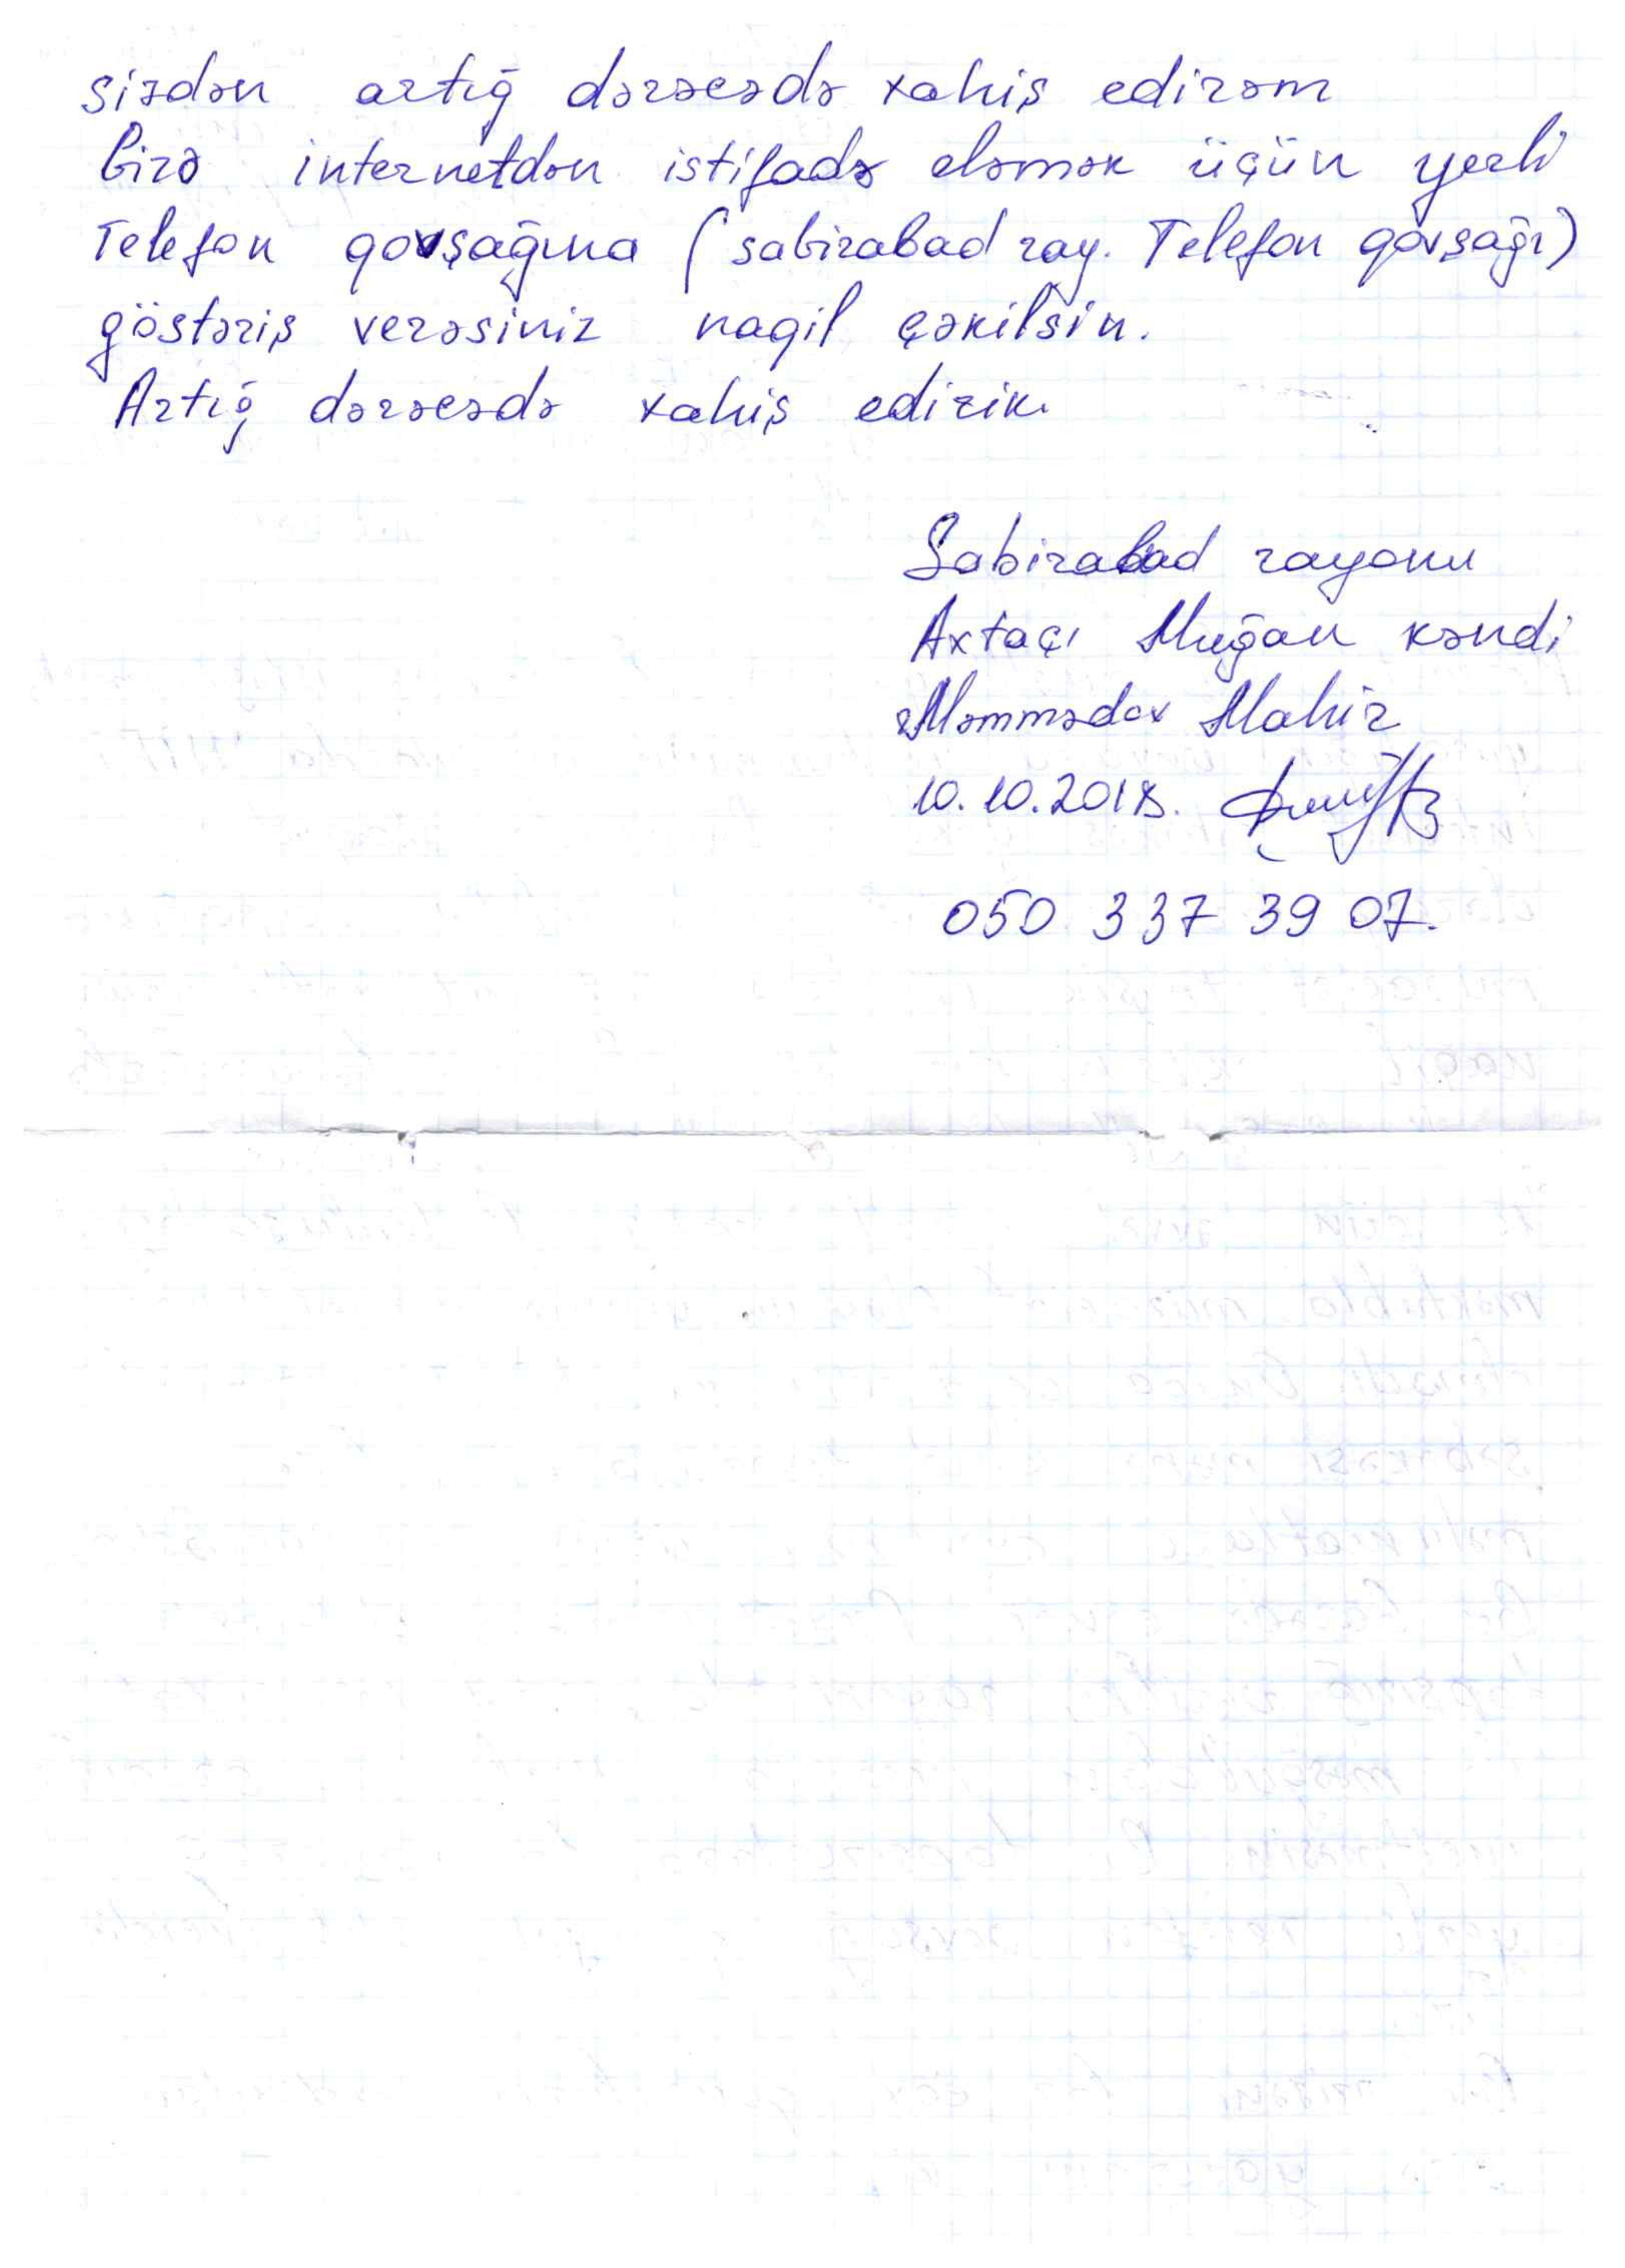 sizdən artığ dərəcədə xahiş edirəm
bizə internetdən istifadə eləmək üçün yerli
Telefon qovşağına (sabirabad ray. Telefon qovşağı)
göstəriş verəsiniz naqil çəkilsin.
Artığ dərəcədə xahiş edirik.
Sabirabad rayonu
Axtaçı Muğan kəndi
Məmmədov Mahir
10.10.2018.
050 337 39 07.